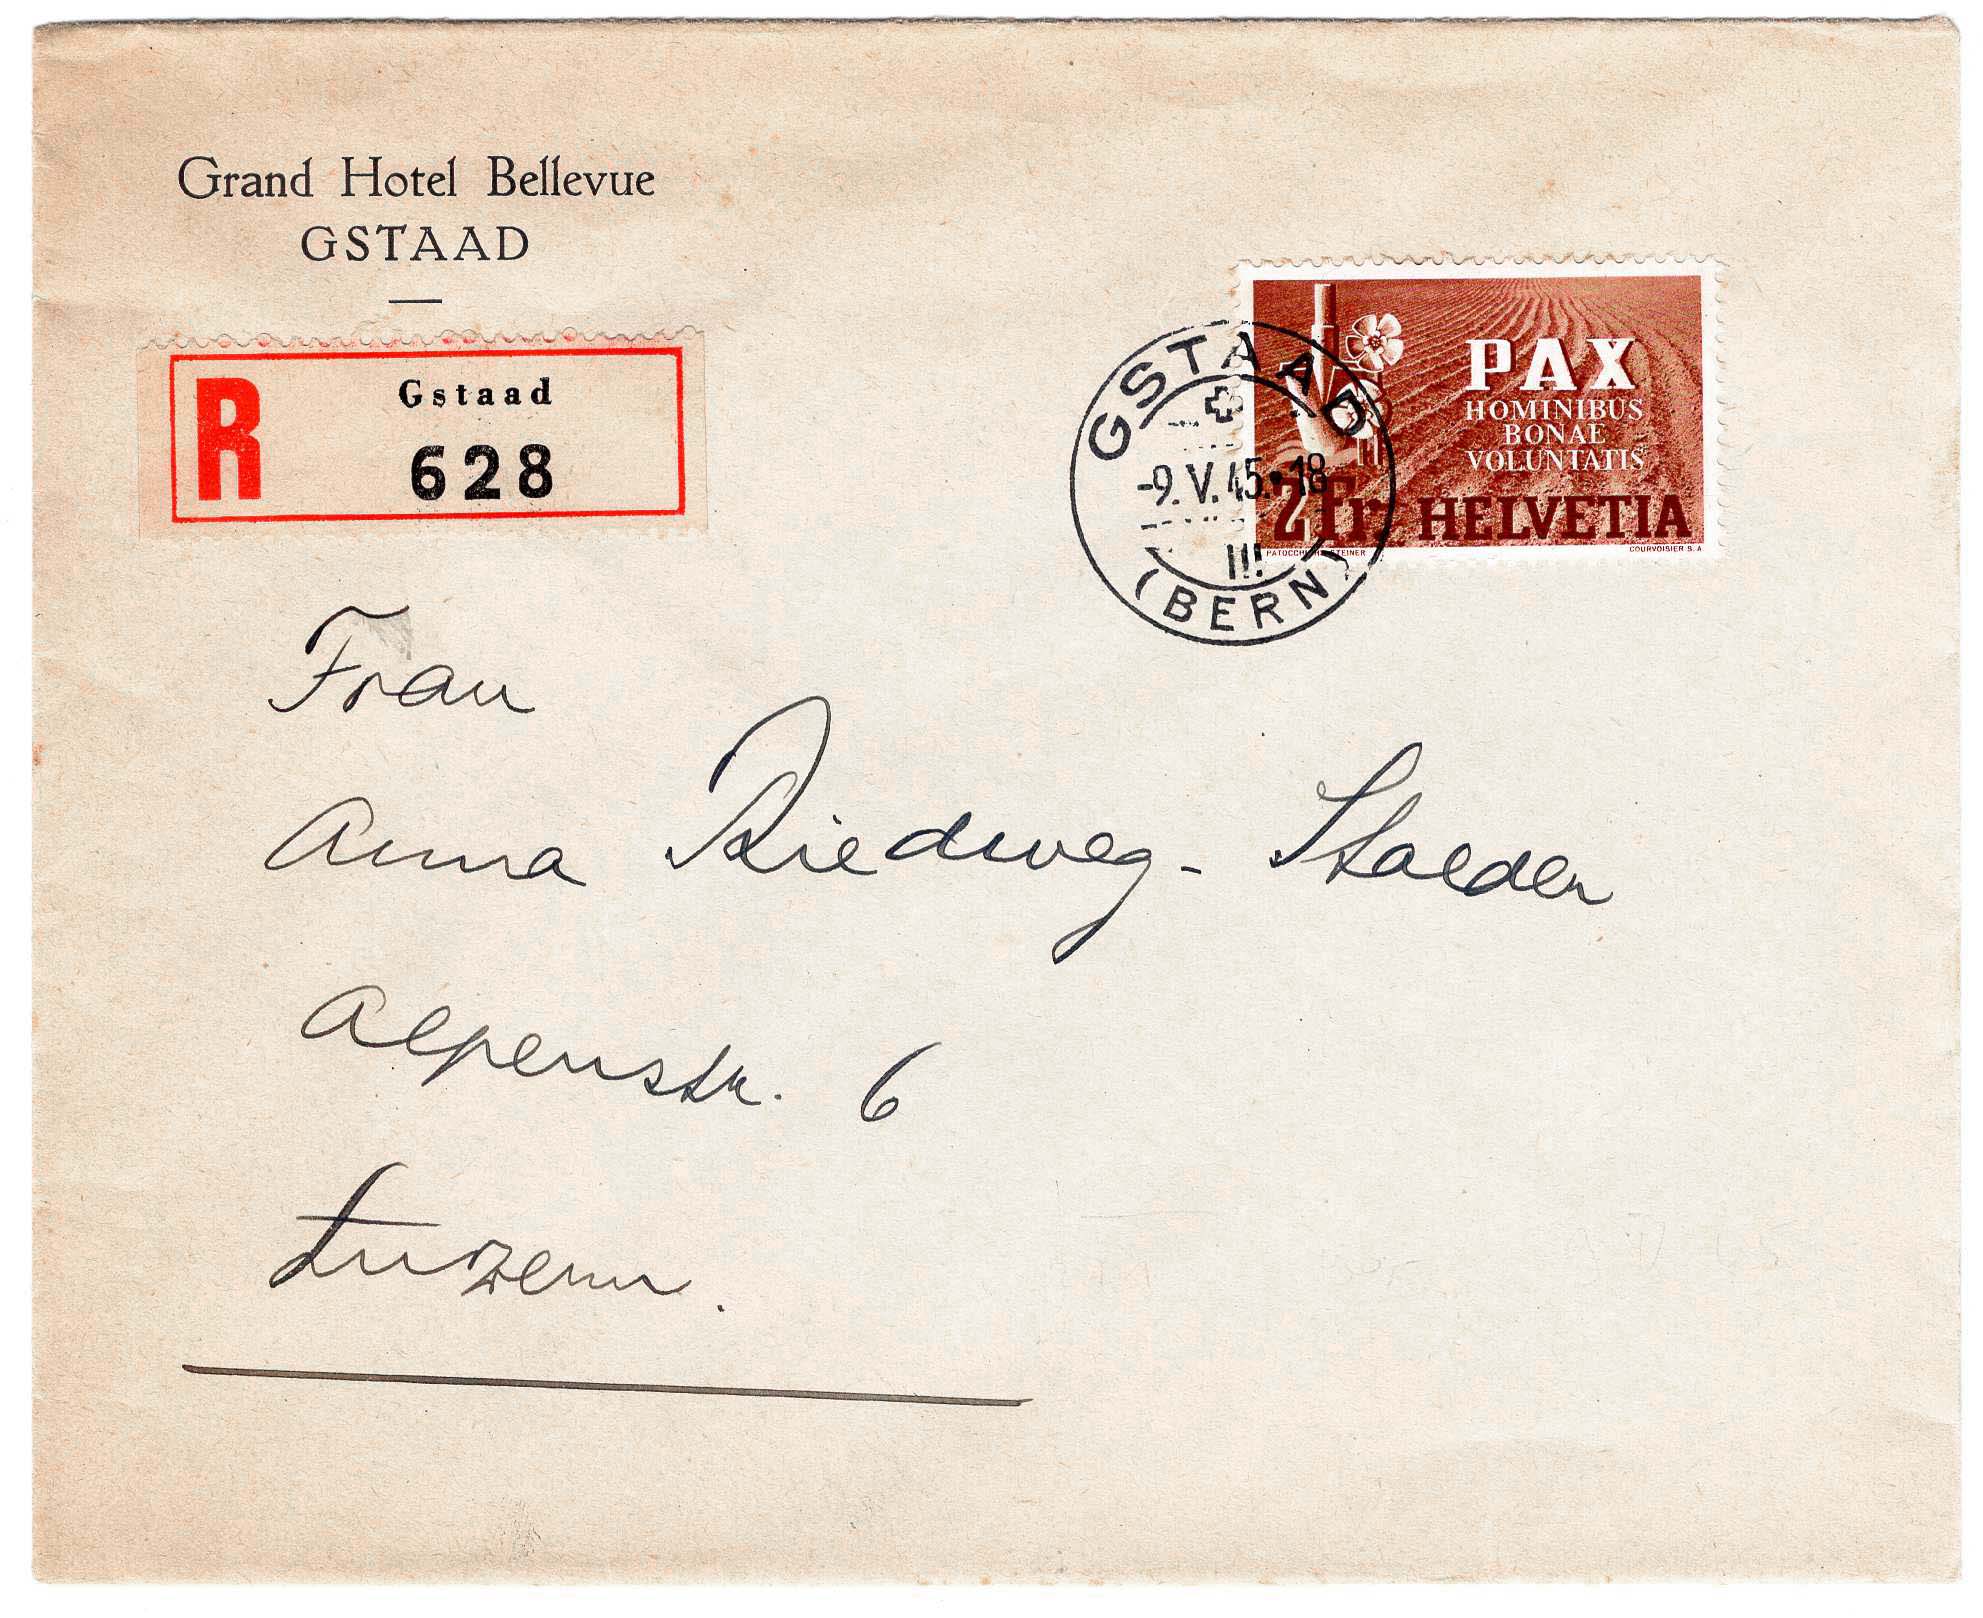 Grand Hotel Bellevue
GSTAAD
R
Gstaad
628
PAX
HOMINIBUS
BONAE
VOLUNTATIS
2 Fr. HELVETIA
COURVOISIER S.A
GSTAAD
-9.V.45.•18
III
(BERN)
Frau
Anna Riedweg-Stalder
Alpenstr. 6
Luzern.